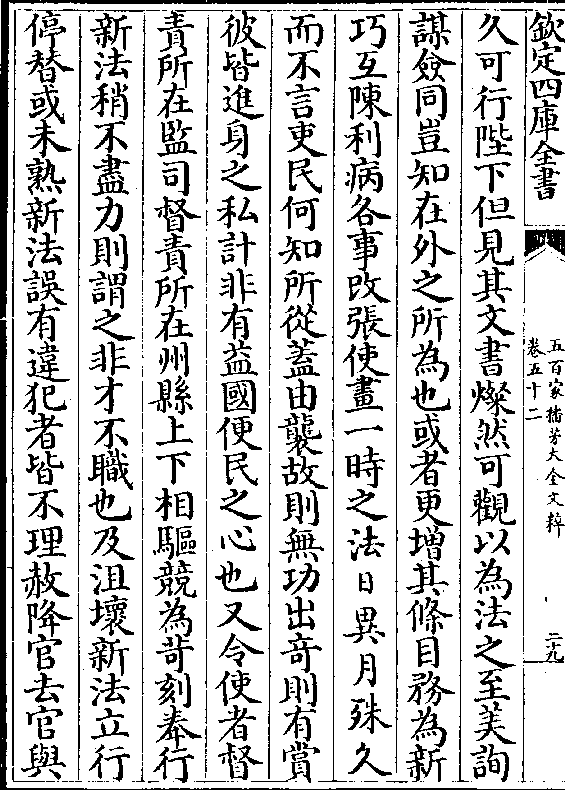 欽定四庫全書
五百家播芳大全文粹
卷五十二
二十九
久可行陛下但見其文書燦然可觀以為法之至美詢
謀僉同豈知在外之所為也或者更增其條目務為新
巧互陳利病各事改張使畫一時之法日異月殊久
而不言吏民何知所從蓋由襲故則無功出奇則有賞
彼皆進身之私計非有益國便民之心也又令使者督
責所在監司督責所在州縣上下相驅競為苛刻奉行
新法稍不盡力則謂之非才不職也及沮壞新法立行
停替或未熟新法誤有違犯者皆不理赦降官去官與